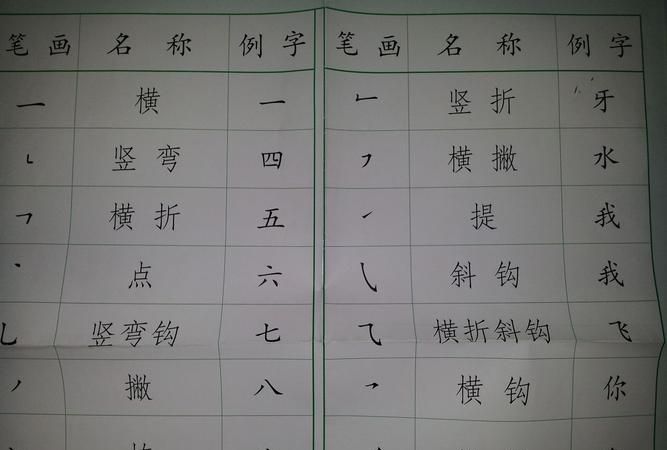 笔画 名称 例字 笔画 名称 例字
㇐ 横 一 ㇗ 竖折 牙
㇄ 竖弯 四 ㇇ 横撇 水
㇕ 横折 五 ㇀ 提 我
㇔ 点 六 ㇂ 斜钩 我
㇟ 竖弯钩 七 ⺄ 横折斜钩 飞
㇒ 撇 八 ㇖ 横钩 你